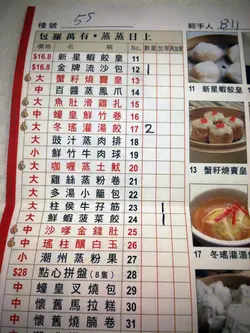 檯號 55 經手人 B11
包羅萬有·蒸蒸日上
價格 名稱 No. 數量
$16.8 新星蝦餃皇 11
$16.8 金牌流沙包 12 1
大 蟹籽燒賣皇 13
中 百醬蒸鳳爪 14
大 魚肚滑雞扎 15
中 蠔皇鮮竹卷 16
中 冬瑤灌湯餃 17 2
大 豉汁蒸肉排 18
小 鮮竹牛肉球 19
大 咖喱蒸土魷 20
大 雞絲蒸粉卷 21
中 多湯小籠包 22
中 柱侯牛孖筋 23
大 鮮蝦菠菜餃 24 1
中 沙嗲金錢肚 25
中 瑤柱釀白玉 26
小 潮州蒸粉果 27
$28 點心拼盤(8隻) 28
中 蠔皇叉燒包 29
中 懷舊馬拉糕 30
中 懷舊燒腩卷 31
11 新星蝦餃皇
13 蟹籽燒賣皇
17 冬瑤灌湯餃